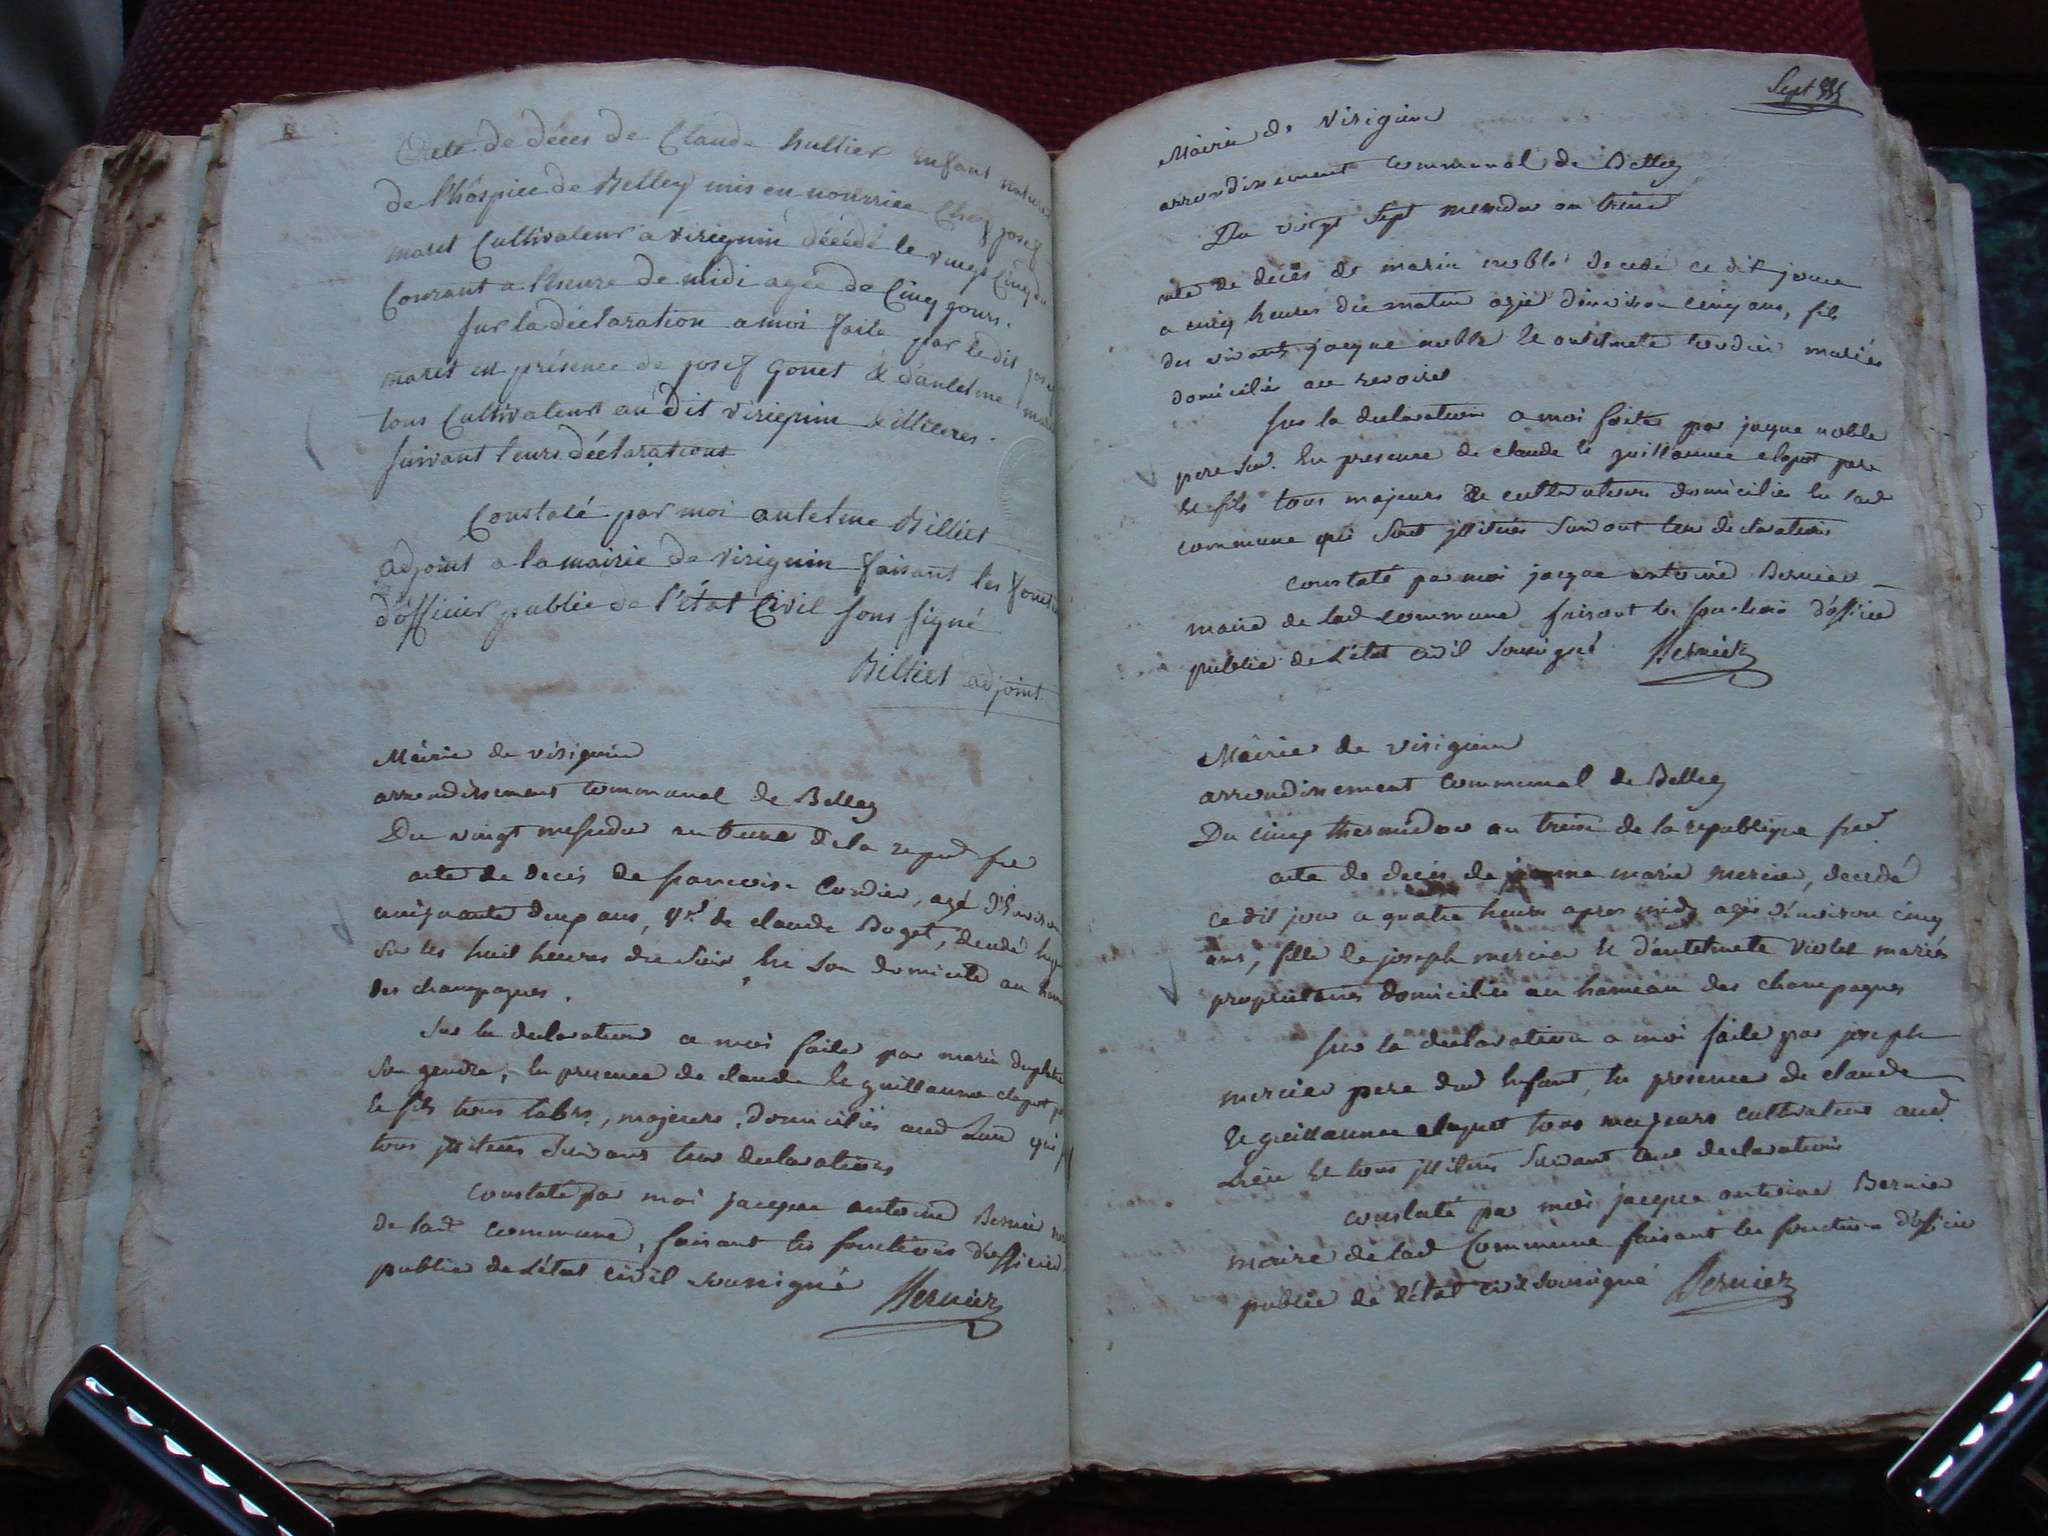 Acte de décès de Claude hultier enfant naturel
de l'hospice de Belley mis en nourrice Chez josef
maret Cultivateur a virignin décédé le vingt Cinq du
Courant a l'heure de midi agée de Cinq jours.
sur la déclaration a moi faite par le dit josef
maret en présence de josef Gonet & d'antelme maret
tous Cultivateurs au dit virignin & illiteres.
suivant leurs déclarations
Constaté par moi antelme Billiet
adjoint a la mairie de virignin faisant les fonct
d'officier public de l'état Civil sous signé
Billiet adjoint
Mairie de virignin
arrondissement communal de Belley
Du vingt messidor an treize de la repud fre
acte de deces de francoise Cordier, agé d'environ
cinquante deux ans, vve de claude Boget, decedé hyer
sur les huit heures du soir En son domicile au ham
des champagnes.
sur la declaration a moi faite par marin
son gendre, En presence de claude Et guillaume clapot
Et fils tous labrs, majeurs, domiciliés aud Lieu qui
tous jlliteres suivant leur declarations
constaté par moi jacque antoine Bernier
de lad commune, faisant les fonctions d'officier
public de L'état civil soussigné Bernier
Sept
Mairie de virignin
arrondissement communal de Belley
Du vingt sept messidor an treize
acte de deces de marin noble decedé ce dit jour
a cinq heures du matin agé d'environ cinq ans, fils
des vivants jacque noble Et antelmete cordier mariés
domiciliés au revoiret
sur la declaration a moi faite par jacque noble
pere En presence de claude Et guillaume clapot pere
Et fils tous majeurs & cultivateurs domiciliés En lad
commune qui sont jlliterés suivant leur declarations
constaté par moi jacque antoine Bernier
maire de lad commune faisant les fonctions d'officier
public de L'état civil soussigné Bernier
Mairie de virignin
arrondissement communal de Belley
Du cinq thermidor an treize de la republique fred
acte de deces de jeanne marie mercier, decedé
ce dit jour a quatre heures apres midy agée d'environ cinq
ans, fille de joseph mercier Et d'antelmete Violet mariés
proprietaires domiciliés au hameau des champagnes
sur la declaration a moi faite par joseph
mercier pere dud Enfant, En presence de claude
Et guillaume clapot tous majeurs cultivateurs aud
Lieu Et tous jlliterés suivant leur declarations
constaté par moi jacque antoine Bernier
maire de lad Commune faisant les fonctions d'officier
public de L'état civil soussigné Bernier